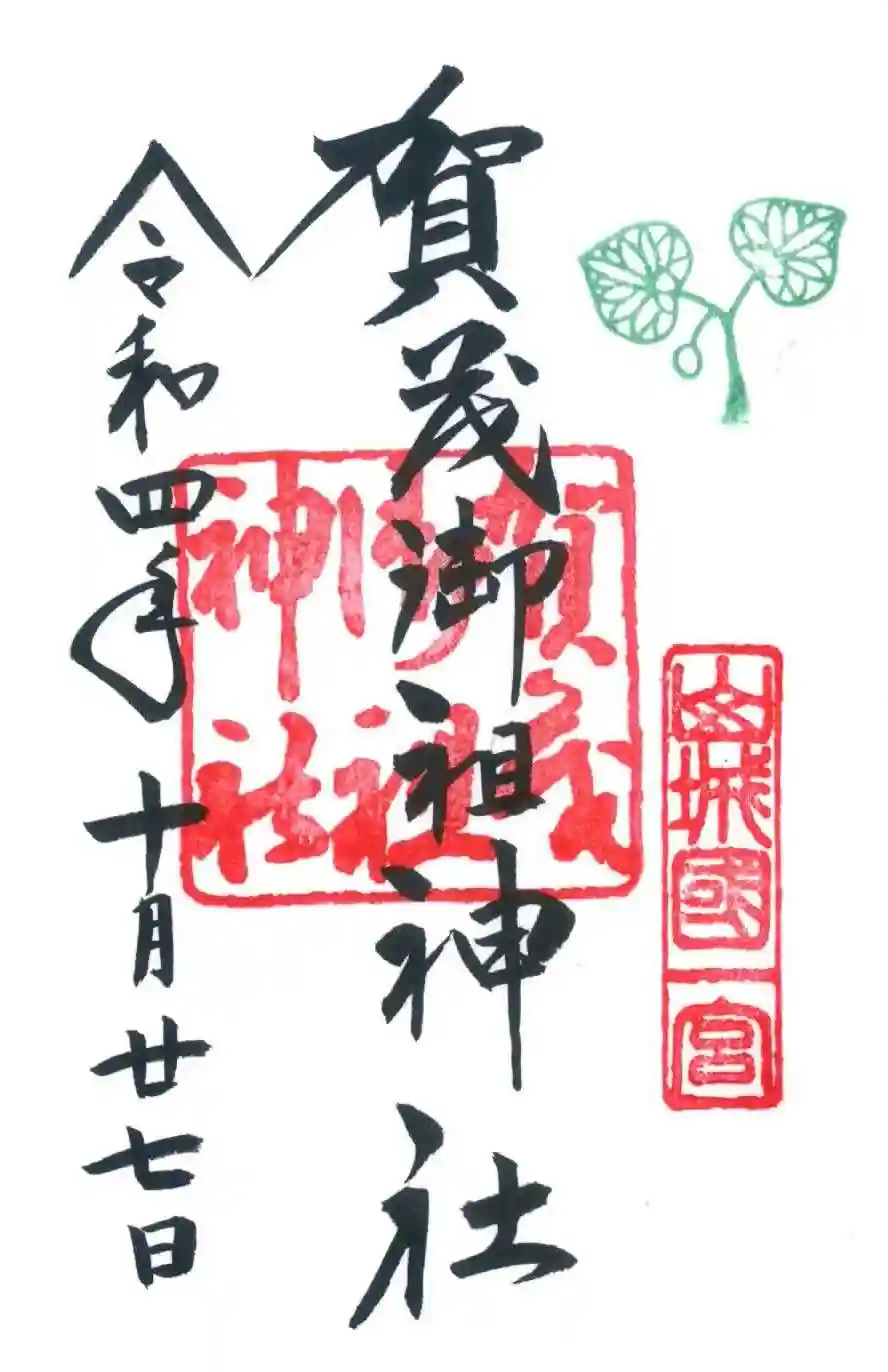 山城國一宮
賀茂御祖神社
賀茂
御祖
神社
令和四年十月廿七日